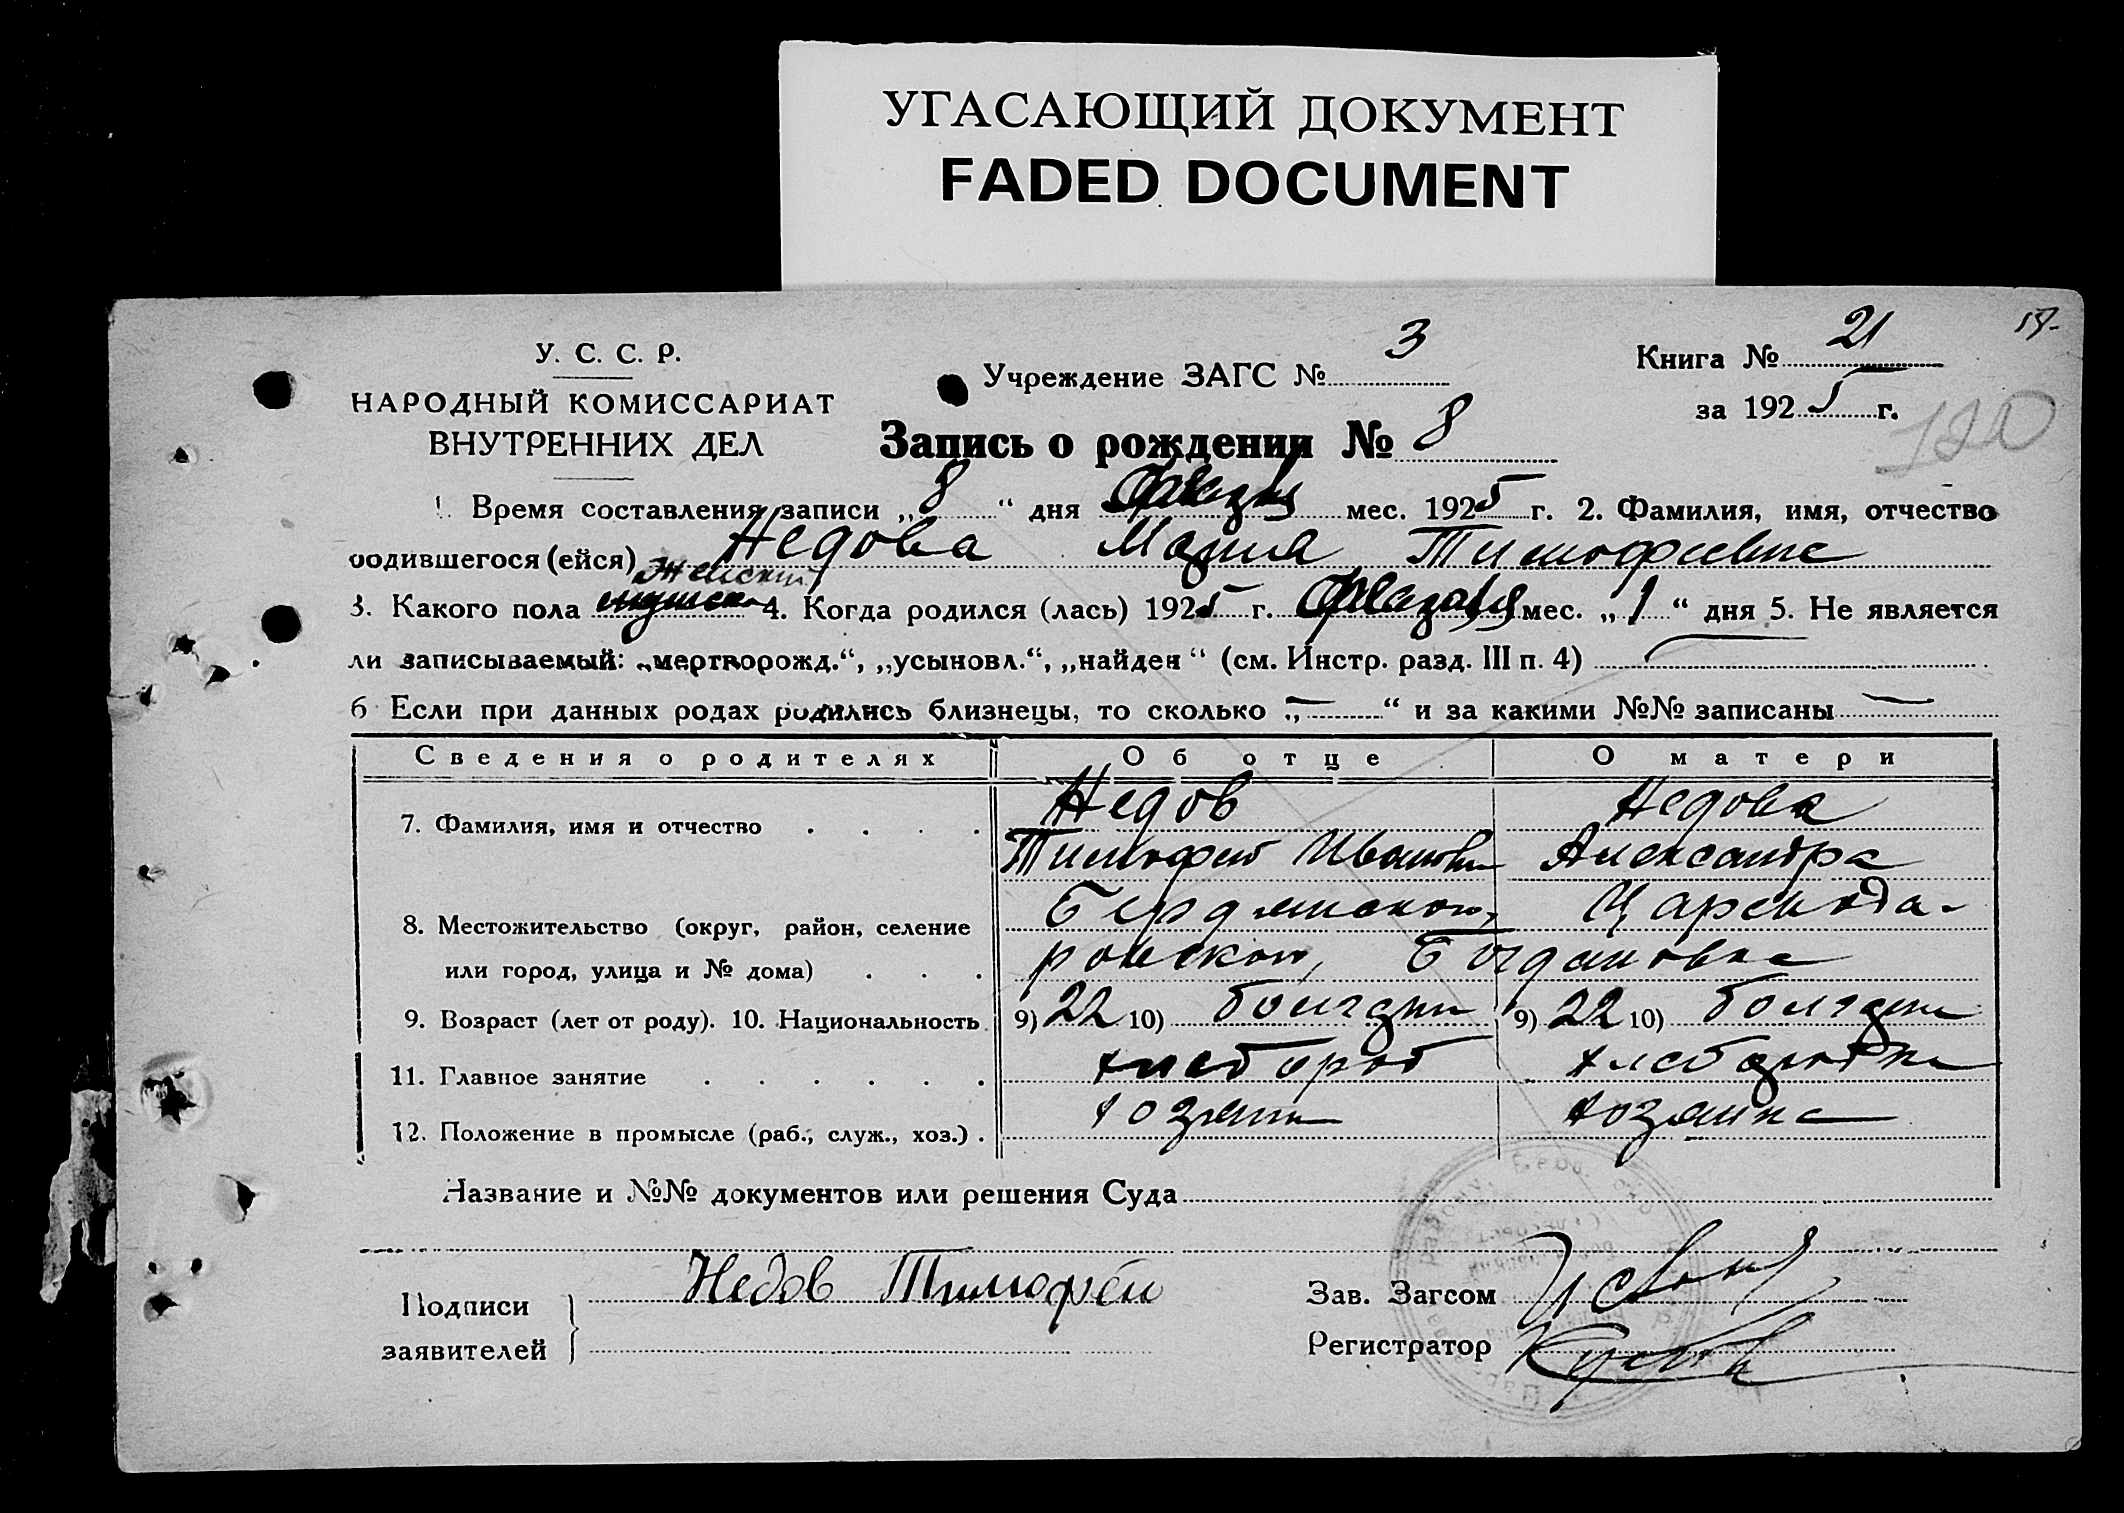 УГАСАЮЩИЙ ДОКУМЕНТ
FADED DOCUMENT
У. С. С. Р.
НАРОДНЫЙ КОМИССАРИАТ
ВНУТРЕННИХ ДЕЛ
Учреждение ЗАГС № 3
Книга № 21
за 1925 г.
120
Запись о рождении № 8
1. Время составления записи „8“ дня февраля мес. 1925 г. 2. Фамилия, имя, отчество
родившегося (ейся) Недова Мария Тимофеевна
женский
3. Какого пола 4. Когда родился (лась) 1925 г. февраля мес. „1“ дня 5. Не является
ли записываемый: „мертворожд.“, „усыновл.“, „найден“ (см. Инстр. разд. III п. 4) —
6 Если при данных родах родились близнецы, то сколько „—“ и за какими №№ записаны —
Сведения о родителях Об отце О матери
7. Фамилия, имя и отчество . . . . Недов Недова
Тимофей Иванович Александра
8. Местожительство (округ, район, селение Бердянского, Царекода-
или город, улица и № дома) . . . ровского, Богдановка
9. Возраст (лет от роду). 10. Национальность 9) 22 10) болгарин 9) 22 10) болгарка
11. Главное занятие . . . . . . хлебороб хлебородка
12. Положение в промысле (раб., служ., хоз.) . хозяин хозяйка
Название и №№ документов или решения Суда
Подписи
заявителей
Недов Тимофей
Зав. Загсом
Регистратор